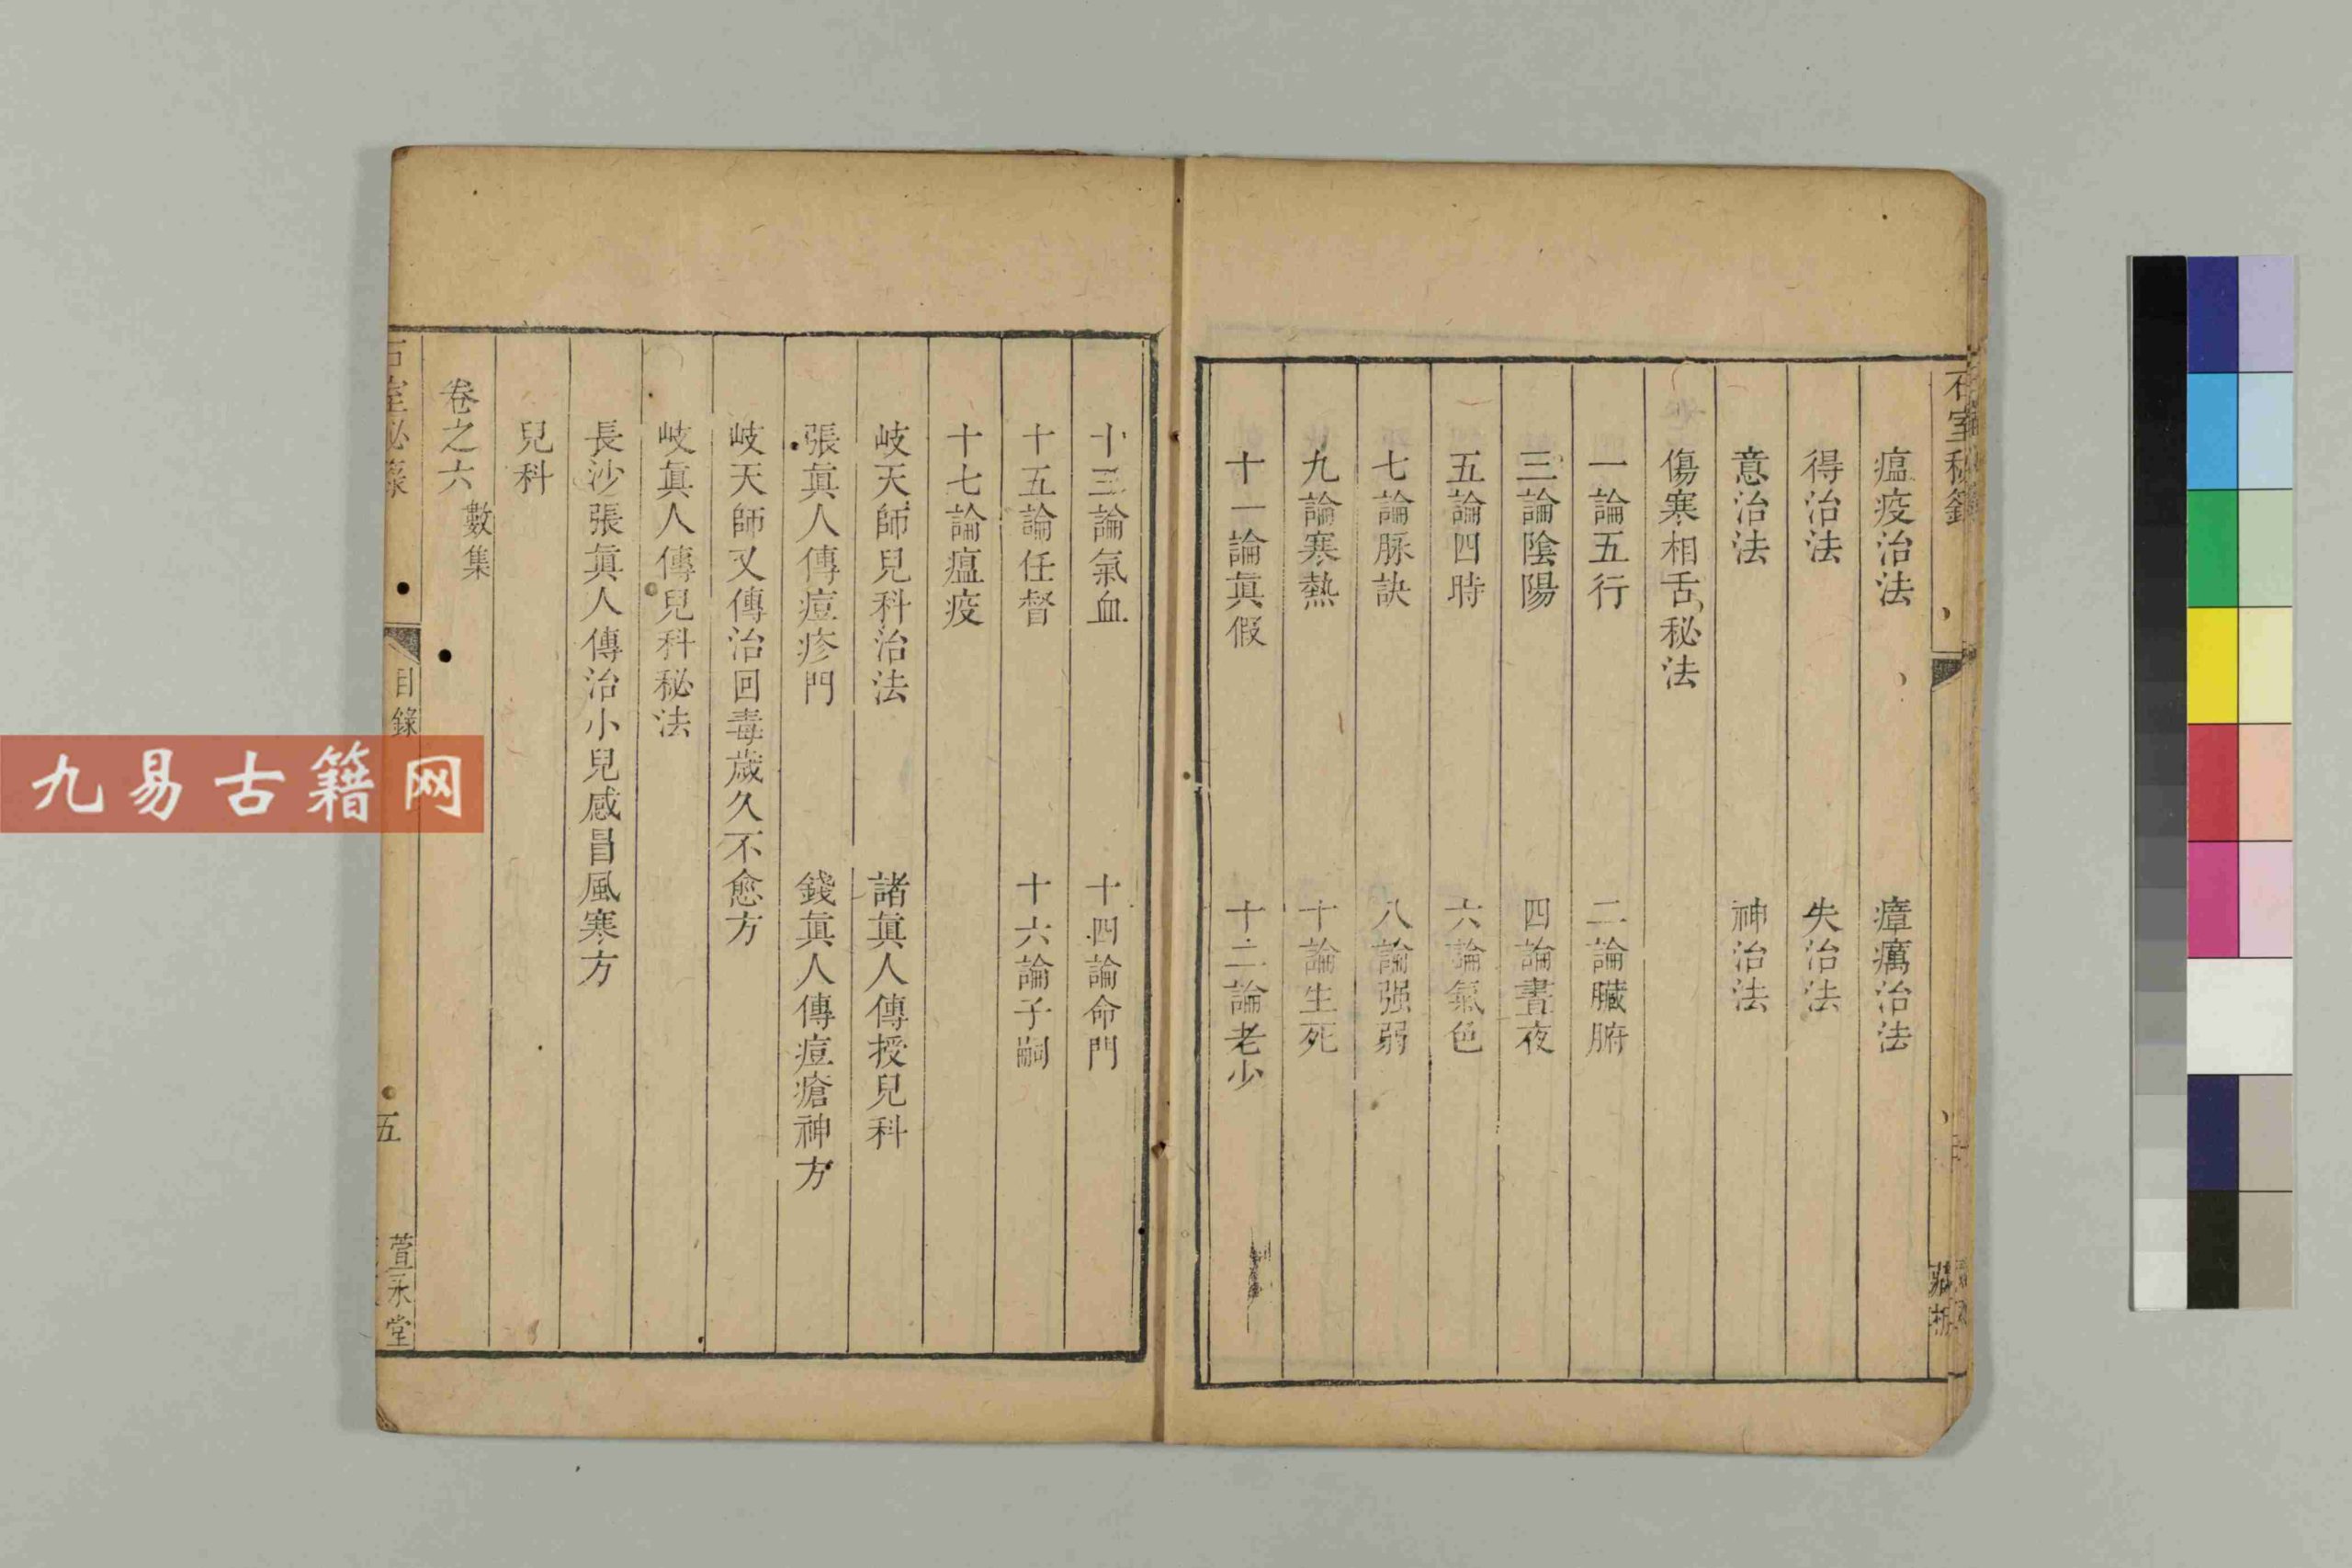 石室秘錄
瘟疫治法　瘴癘治法
得治法　失治法
意治法　神治法
傷寒相舌秘法
一論五行　二論臟腑
三論陰陽　四論晝夜
五論四時　六論氣色
七論脉訣　八論强弱
九論寒熱　十論生死
十一論眞假　十二論老少
十三論氣血　十四論命門
十五論任督　十六論子嗣
十七論瘟疫
岐天師兒科治法　諸眞人傳授兒科
張眞人傳痘疹門　錢眞人傳痘瘡神方
岐天師又傳治回毒歲久不愈方
岐眞人傳兒科秘法
長沙張眞人傳治小兒感冒風寒方
兒科
卷之六 數集
石室秘錄 目錄 五 萱永堂
九易古籍网